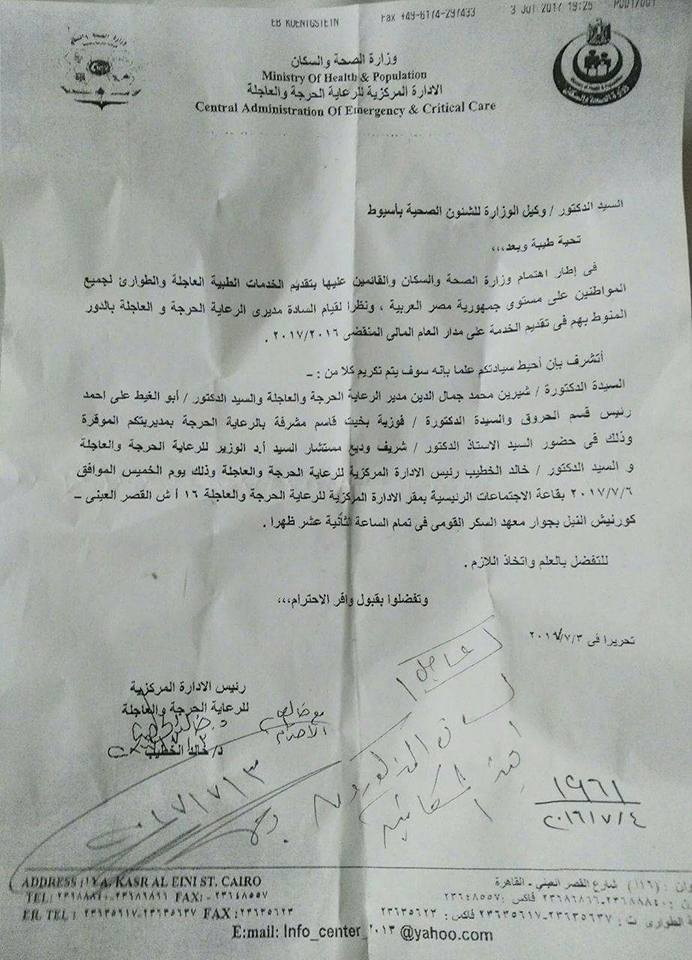 EB KOENIGSTEIN Fax +49-6174-297433 3 Jul 2017 19:25 P001/001
وزارة الصحة والسكان
Ministry Of Health & Population
الادارة المركزية للرعاية الحرجة والعاجلة
Central Administration Of Emergency & Critical Care
السيد الدكتور / وكيل الوزارة للشئون الصحية بأسيوط
تحية طيبة وبعد،،،
فى إطار اهتمام وزارة الصحة والسكان والقائمين عليها بتقديم الخدمات الطبية العاجلة والطوارئ لجميع
المواطنين على مستوى جمهورية مصر العربية ، ونظرا لقيام السادة مديرى الرعاية الحرجة و العاجلة بالدور
المنوط بهم فى تقديم الخدمة على مدار العام المالى المنقضى ٢٠١٧/٢٠١٦ .
أتشرف بان أحيط سيادتكم علما بانه سوف يتم تكريم كلا من : –
السيدة الدكتورة / شيرين محمد جمال الدين مدير الرعاية الحرجة والعاجلة والسيد الدكتور / أبو الغيط على احمد
رئيس قسم الحروق والسيدة الدكتورة / فوزية بخيت قاسم مشرفة بالرعاية الحرجة بمديريتكم الموقرة
وذلك فى حضور السيد الاستاذ الدكتور / شريف وديع مستشار السيد أ.د الوزير للرعاية الحرجة والعاجلة
و السيد الدكتور / خالد الخطيب رئيس الادارة المركزية للرعاية الحرجة والعاجلة وذلك يوم الخميس الموافق
٢٠١٧/٧/٦ بقاعة الاجتماعات الرئيسية بمقر الادارة المركزية للرعاية الحرجة والعاجلة ١٦ أ ش القصر العينى –
كورنيش النيل بجوار معهد السكر القومى فى تمام الساعة الثانية عشر ظهرا .
للتفضل بالعلم واتخاذ اللازم .
وتفضلوا بقبول وافر الاحترام،،،
تحريرا فى ٢٠١٧/٧/٣
عاجل
رئيس الادارة المركزية
للرعاية الحرجة والعاجلة
مع خالص
الاحترام
د/ خالد الخطيب
٢٠١٧/٧/٣
١٩٦١
٢٠١٦/٧/٤
ADDRESS KASR AL EINI ST. CAIRO
شارع القصر العينى - القاهرة
FAX: ٢٣٦٤٨٥٥٧
فاكس: ٢٣٦٤٨٥٥٧
TEL : ٢٣٦٣٥٦١٧-٢٣٦٣٥٦٣٧ FAX :٢٣٦٣٥٦٢٣
٢٣٦٣٥٦١٧-٢٣٦٣٥٦٣٧ فاكس : ٢٣٦٣٥٦٢٣
E:mail: Info_center_٢٠١٣ @yahoo.com